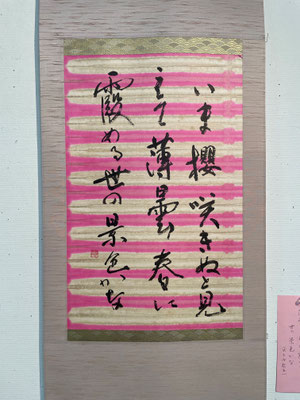 いま櫻咲きぬと見
えて薄曇春に
霞める世の景色かな